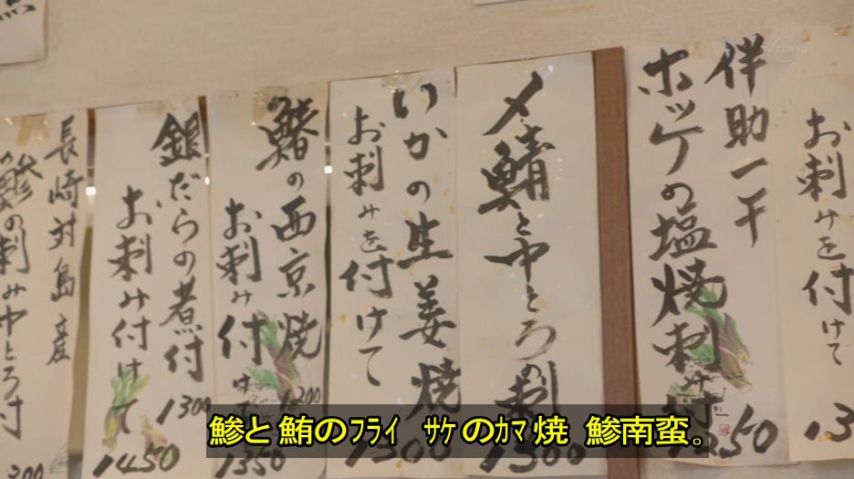 お刺みを付けて
伴助一干
ホッケの塩焼刺み
50
〆鯖と中とろの刺
1300
いかの生姜焼
お刺みを付けて
1300
鰆の西京焼
1200
お刺み付け
1350
銀だらの煮付
1300
お刺み付けて
1450
長崎対島産
鯵の刺み中とろ付
300
鯵と鮪のﾌﾗｲ ｻｹのｶﾏ焼 鯵南蛮。
TV TOKYO